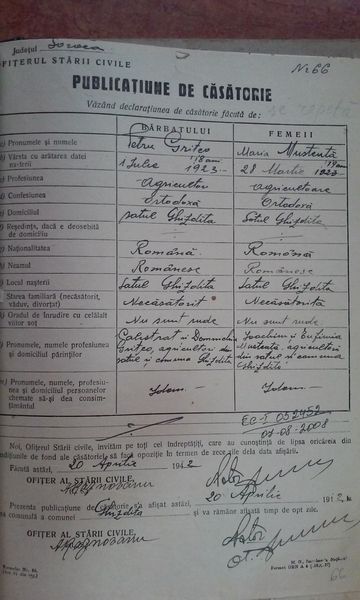 Județul Soroca
OFIȚERUL STĂRII CIVILE
№ 66
PUBLICAȚIUNE DE CĂSĂTORIE
Văzând declarațiunea de căsătorie făcută de:
BĂRBATULUI FEMEII
Pronumele și numele Petru Griteo Maria Mustență
Vârsta cu arătarea datei nașterii 1 Iulie 1923 18 ani 28 Martie 1923
Profesiunea Agricultor agricultoare
Confesiunea Ortodoxă Ortodoxă
Domiciliul satul Ghizdita Satul Ghizdita
Reședința, dacă e deosebită de domiciliu
Naționalitatea Română Română
Neamul Românesc Românesc
Locul nașterii Satul Ghizdita Satul Ghizdita
Starea familiară (necăsătorit, văduv, divorțat) Necăsătorit Necăsătorită
Gradul de înrudire cu celălalt viitor soț Nu sunt rude Nu sunt rude
Pronumele, numele, profesiunea și domiciliul părinților
Calistrat și
Griteo, agricultori din
satul și comuna Ghizdita
Ioachim și Eufimia
Mustență, agricultori
din satul și comuna
Ghizdita
Pronumele, numele, profesiunea și domiciliul persoanelor chemate să-și dea consimțământul Idem Idem
052452
07-08-2008
Noi, Ofițerul Stării civile, invităm pe toți cei îndreptăți, care au cunoștință de lipsa oricăreia din
condițiunile de fond ale căsătoriei să facă opoziție în termen de zece zile dela data afișării.
Făcută astăzi, 20 Aprilie 1942
OFIȚER AL STĂRII CIVILE,
Prezenta publicațiune de căsătorie s'a afișat astăzi, 20 Aprilie 1942, la
casa comunală a comunei Ghizdita și va rămâne afișată timp de opt zile.
OFIȚER AL STĂRII CIVILE,
66